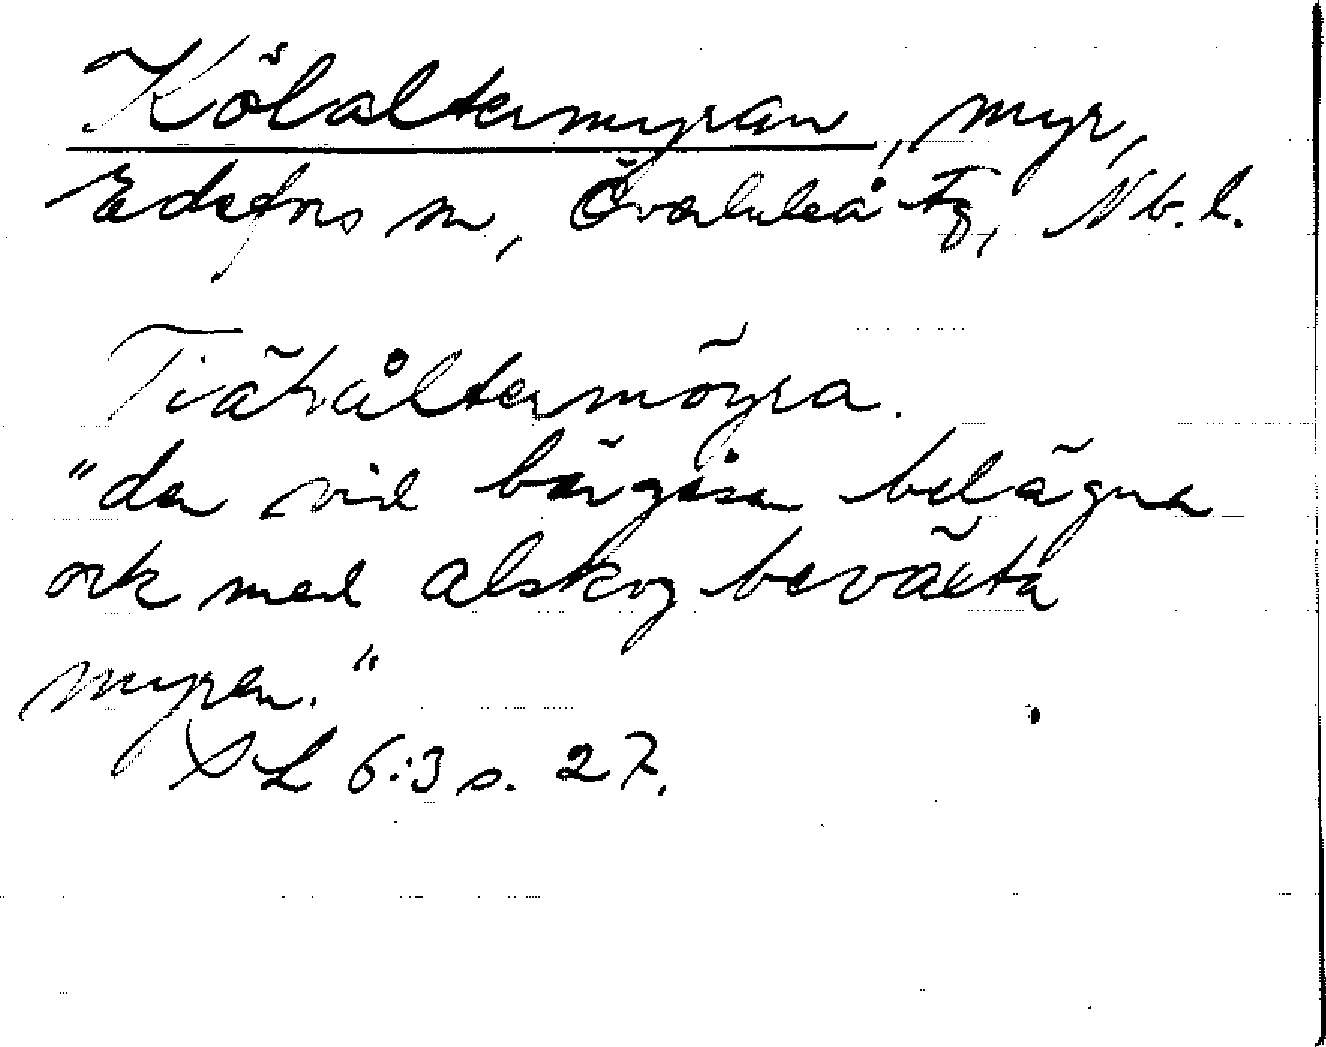 Kölaltermyran, myr,
Edefors sn, Överluleå tg, Nb. l.
Tiäråltermöyra.
"den vid bärgisen belägna
ock med alskog beväxta
myren."
SL 6:3 s. 27.